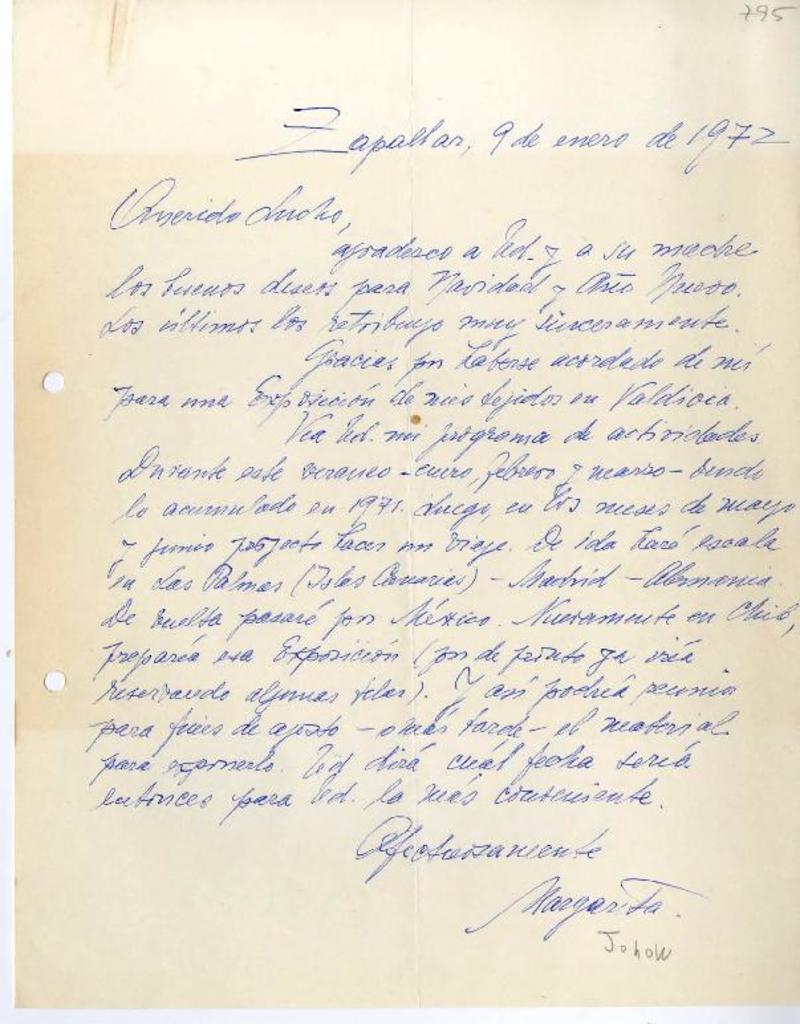 795
Zapallar, 9 de enero de 1972
Querido Lucho,
agradezco a Ud. y a su madre
los buenos deseos para Navidad y Año Nuevo.
Los últimos los retribuyo muy sinceramente.
Gracias por haberse acordado de mí
para una Exposición de mis tejidos en Valdivia.
Vea Ud. mi programa de actividades.
Durante este veraneo - enero, febrero y marzo - vendo
lo acumulado en 1971. Luego, en los meses de mayo
y junio proyecto hacer un viaje. De ida haré escala
en Las Palmas (Islas Canarias) - Madrid - Alemania.
De vuelta pasaré por México. Nuevamente en Chile,
preparía esa Exposición (por de pronto ya iría
reservando algunas telas). Y así podría reunir
para fines de agosto - o más tarde - el material
para exponerlo. Ud dirá cuál fecha sería
entonces para Ud. la más conveniente.
Afectuosamente
Margarita.
Johow